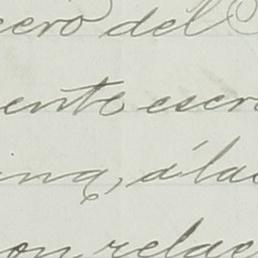 cero del
ente escri
ina, á la
on relac